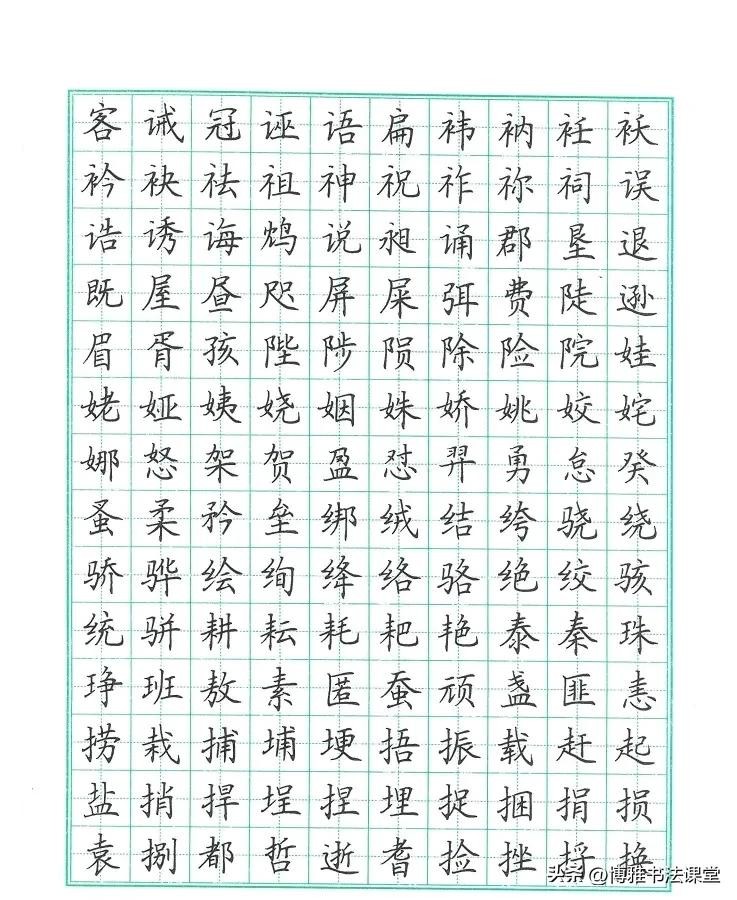 客诫冠诬语扁袆衲衽袄
衿袂祛祖神祝祚祢祠误
诰诱诲鸩说昶诵郡垦退
既屋昼咫屏屎弭费陡逊
眉胥孩陛陟陨除险院娃
姥娅姨娆姻姝娇姚姣姹
娜怒架贺盈怼羿勇怠癸
蚤柔矜垒绑绒结绔骁绕
骄骅绘绚绛络骆绝绞骇
统骈耕耘耗耙艳泰秦珠
琤班敖素匿蚕顽盏匪恚
捞栽捕埔埂捂振载赶起
盐捎捍埕捏埋捉捆捐损
袁捌都哲逝耆捡挫捋换
头条 @博雅书法课堂